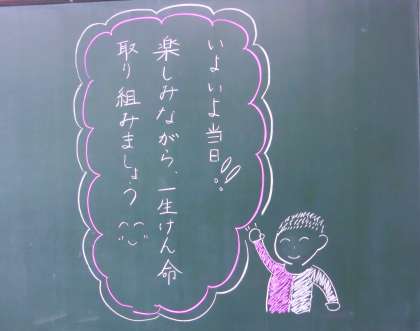 いよいよ当日!!
楽しみながら、一生けん命
取り組みましょう